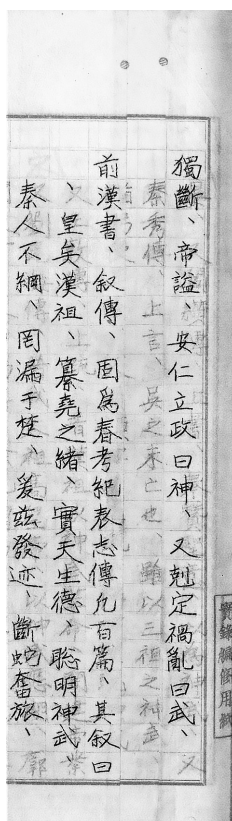 獨斷、帝謚、安仁立政曰神、又剋定禍亂曰武、
秦秀傳、上言、吳之未亡也、雖以三祖之神武、
前漢書、叙傳、固爲春考紀表志傳凡百篇、其叙曰
、皇矣漢祖、纂堯之緒、實天生德、聰明神武、
秦人不綱、罔漏于楚、爰茲發迹、斷蛇奮旅、
實錄編修用紙